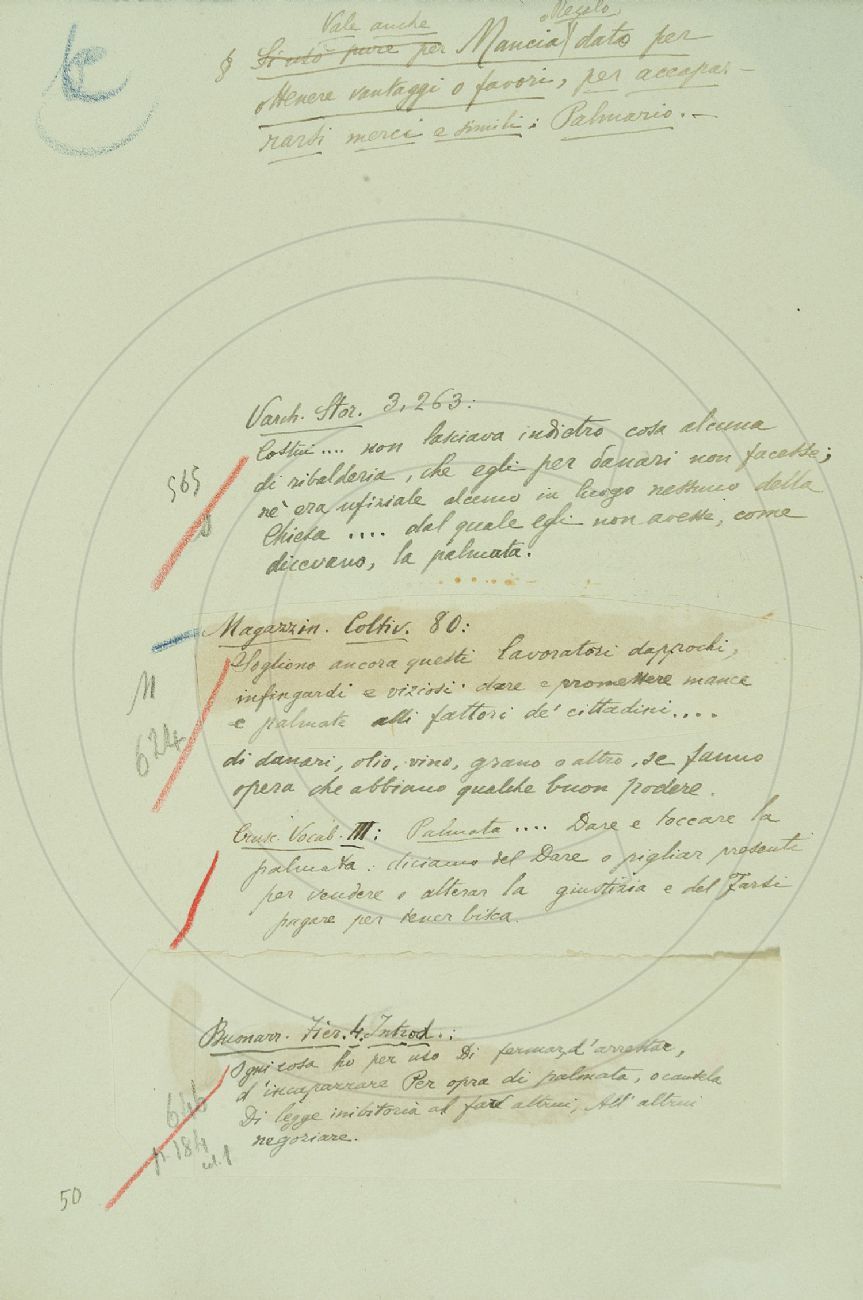 Vale anche o Regalo,
§ Si usò pure per Mancia dato per
ottenere vantaggi o favori, per accapar-
rarsi merci e simili: Palmario.-
Varch. Stor. 3, 263:
Costui .... non lasciava indietro cosa alcuna
di ribalderia, che egli per danari non facesse;
nè era ufiziale alcuno in luogo nessuno della
Chiesa .... dal quale egli non avesse, come
dicevano, la palmata.
565
Magazzin. Coltiv. 80:
Sogliono ancora questi lavoratori dappochi,
infingardi e viziosi dare e promettere mance
e palmate alli fattori de' cittadini ....
di danari, olio, vino, grano o altro, se fanno
opera che abbiano qualche buon podere.
624
Crusc. Vocab. III: Palmata .... Dare e toccare la
palmata: diciamo del Dare o pigliar presenti
per vendere o alterar la giustizia e del Farsi
pagare per tener bisca.
Buonarr. Fier. 4. Introd.:
Ogni cosa ho per uso Di fermar, d'arrestar,
d'incaparrare Per opra di palmata, o cautela
Di legge inibitoria al far altrui, All'altrui
negoziare.
646
p. 184
col. 1
50